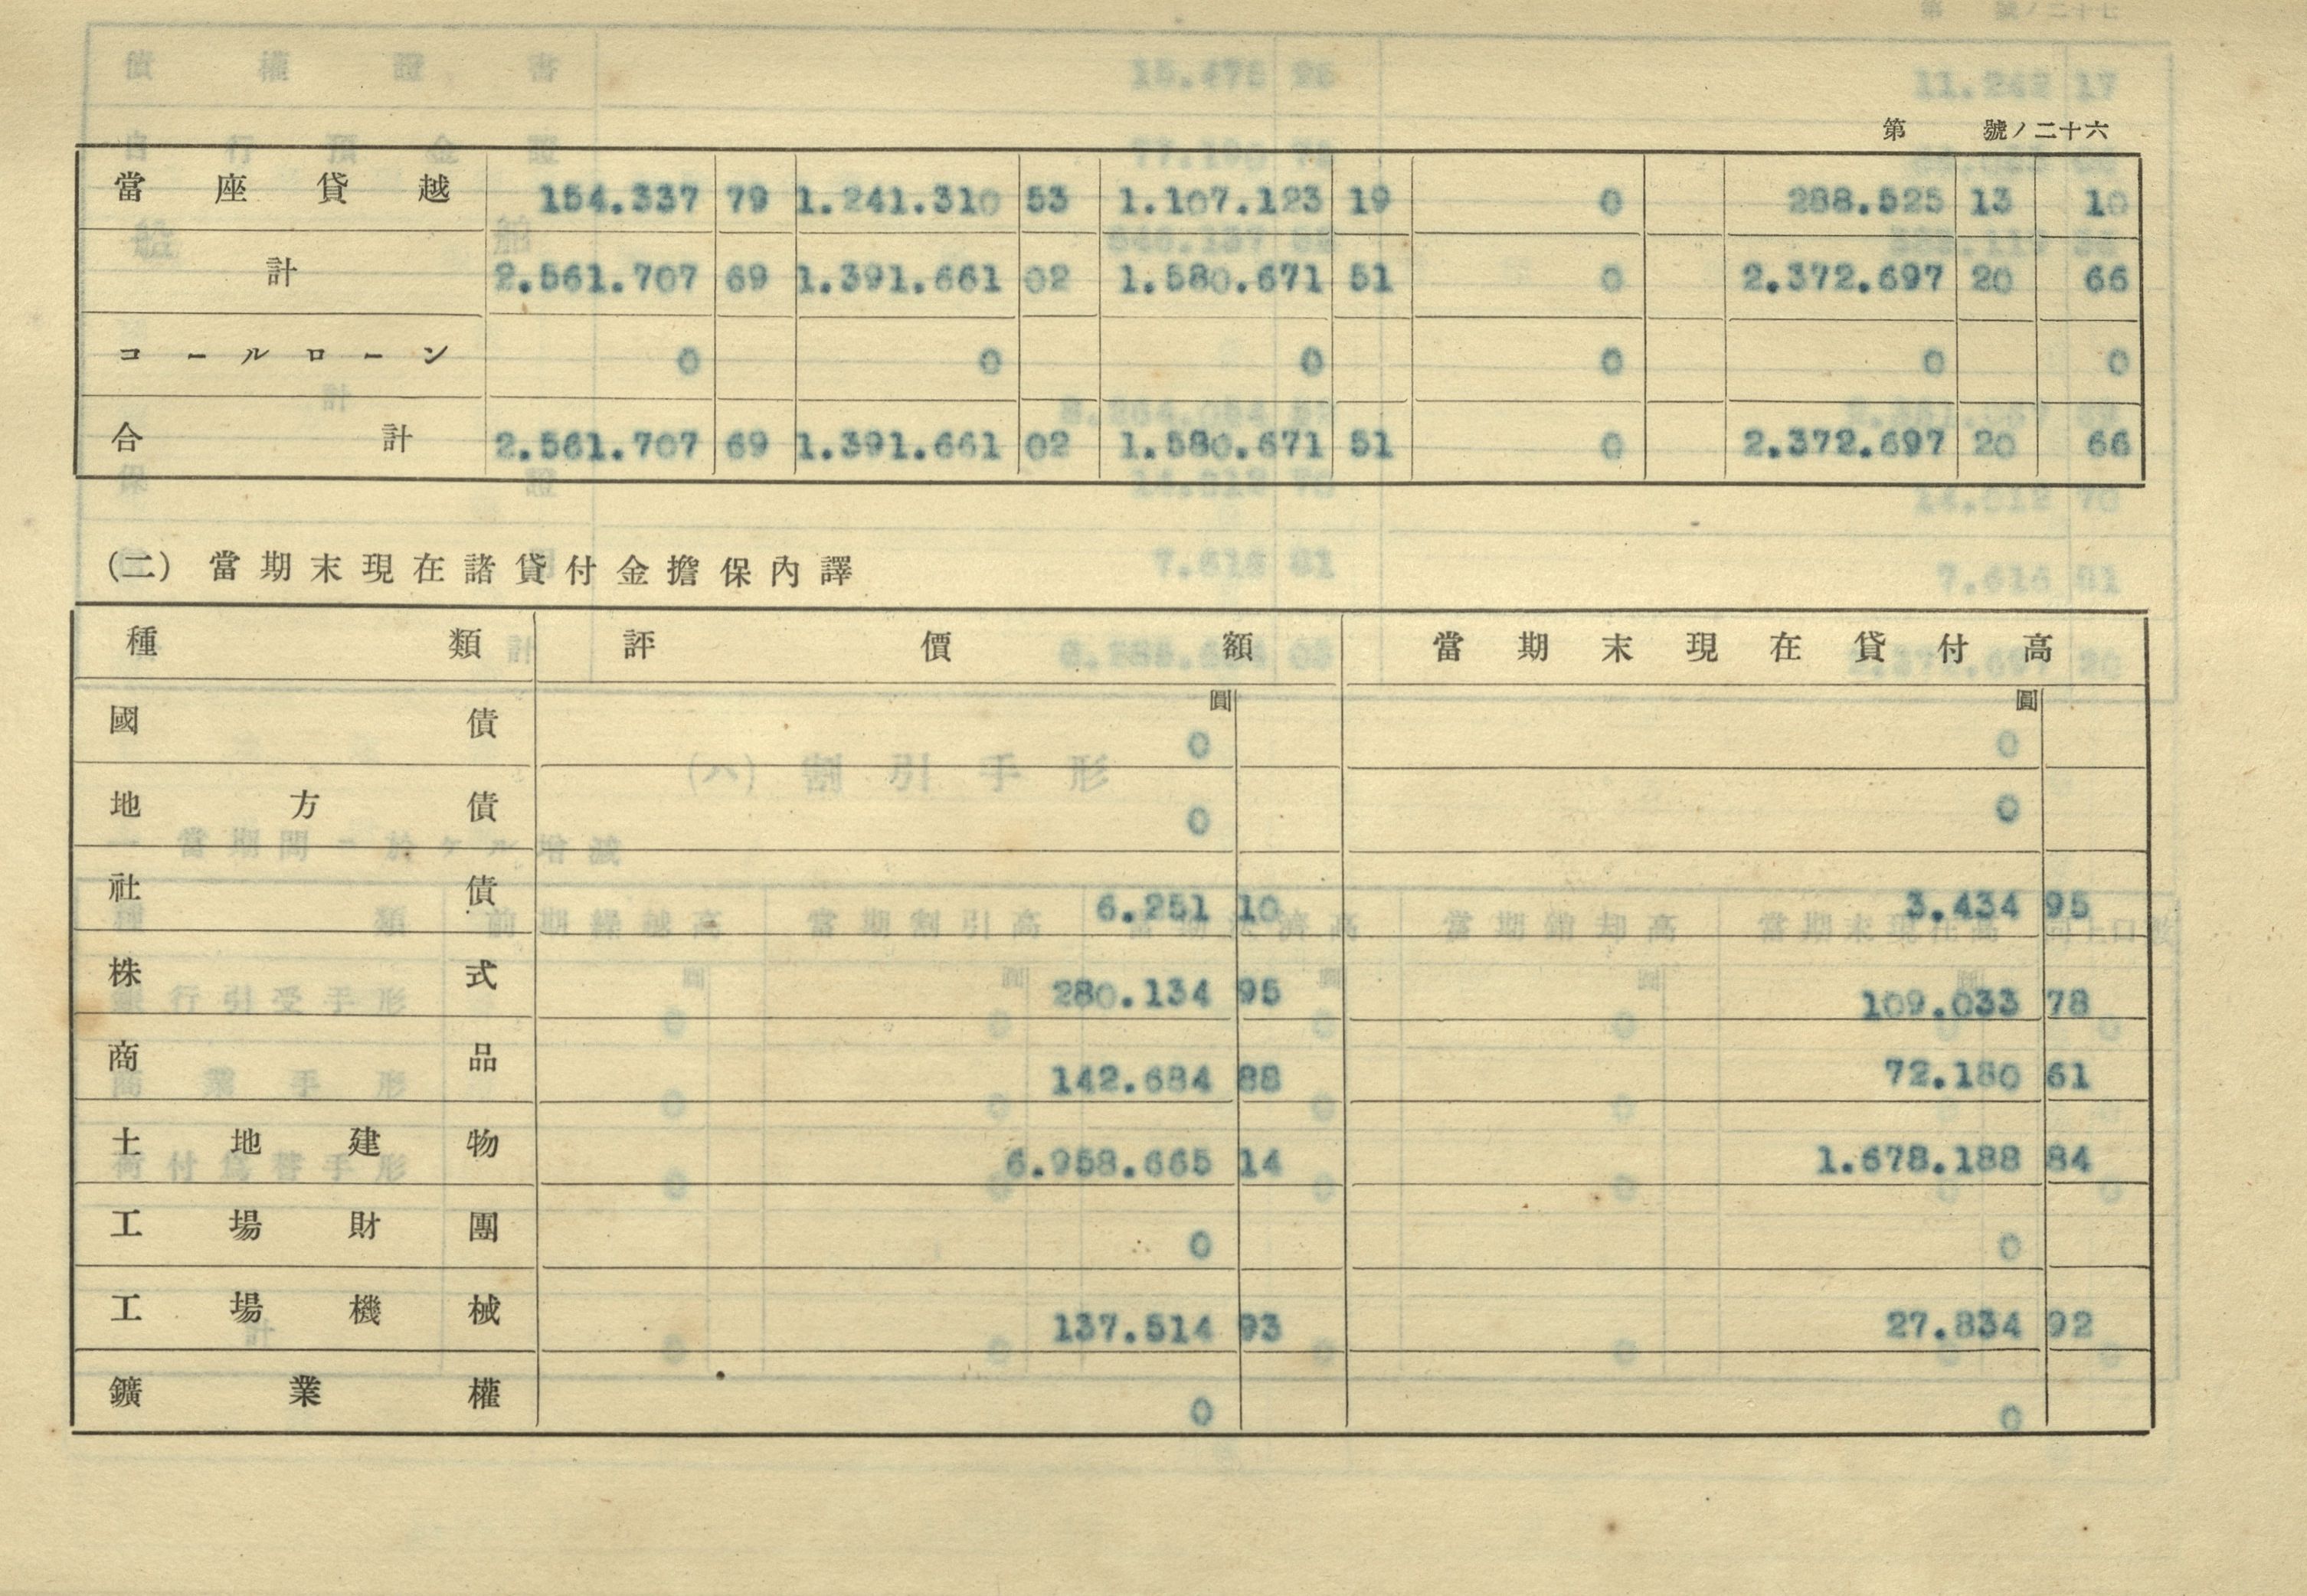 第 號ノ二十六
當座貸越 154.337 79 1.241.310 53 1.107.123 19 0 288.525 13 10
計 2.561.707 69 1.391.661 02 1.580.671 51 0 2.372.697 20 66
コールローン 0 0 0 0 0 0
合計 2.561.707 69 1.391.661 02 1.580.671 51 0 2.372.697 20 66
(二) 當期末現在諸貸付金擔保內譯
種類 評價額 當期末現在貸付高
圓 圓
國債 0 0
地方債 0 0
社債 6.251 10 3.434 95
株式 280.134 95 109.033 78
商品 142.684 88 72.180 61
土地建物 6.958.665 14 1.678.188 84
工場財團 0 0
工場機械 137.514 93 27.834 92
鑛業權 0 0